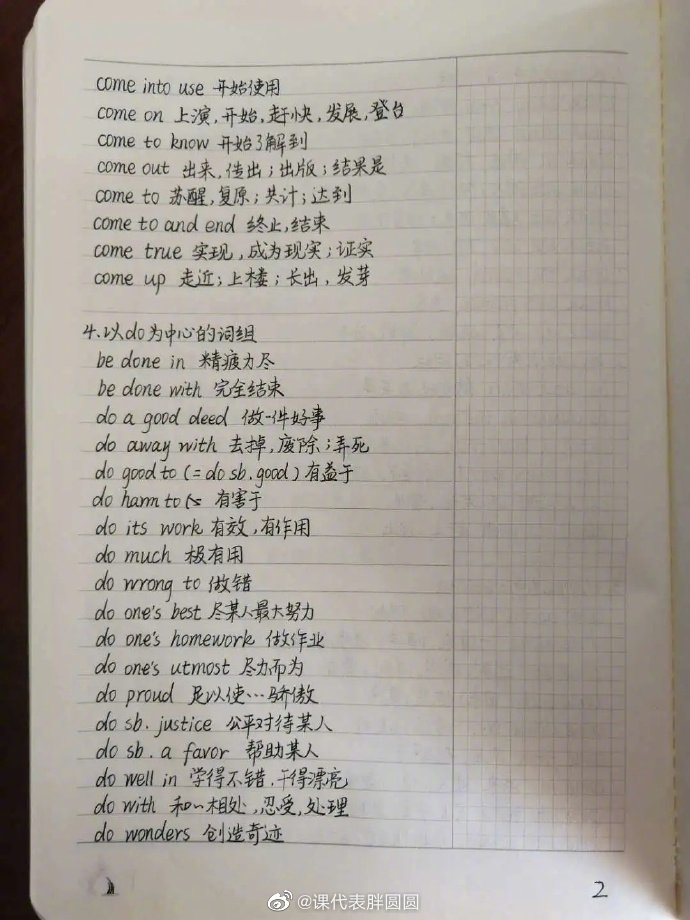 come into use 开始使用
come on 上演,开始,赶快,发展,登台
come to know 开始了解到
come out 出来,传出;出版;结果是
come to 苏醒,复原;共计;达到
come to and end 终止,结束
come true 实现,成为现实;证实
come up 走近;上楼;长出,发芽
4.以do为中心的词组
be done in 精疲力尽
be done with 完全结束
do a good deed 做一件好事
do away with 去掉,废除;弄死
do good to (=do sb.good)有益于
do harm to (= 有害于
do its work 有效,有作用
do much 极有用
do wrong to 做错
do one's best 尽某人最大努力
do one's homework 做作业
do one's utmost 尽力而为
do proud 足以使…骄傲
do sb. justice 公平对待某人
do sb. a favor 帮助某人
do well in 学得不错,干得漂亮
do with 和~相处,忍受,处理
do wonders 创造奇迹
@课代表胖圆圆
2